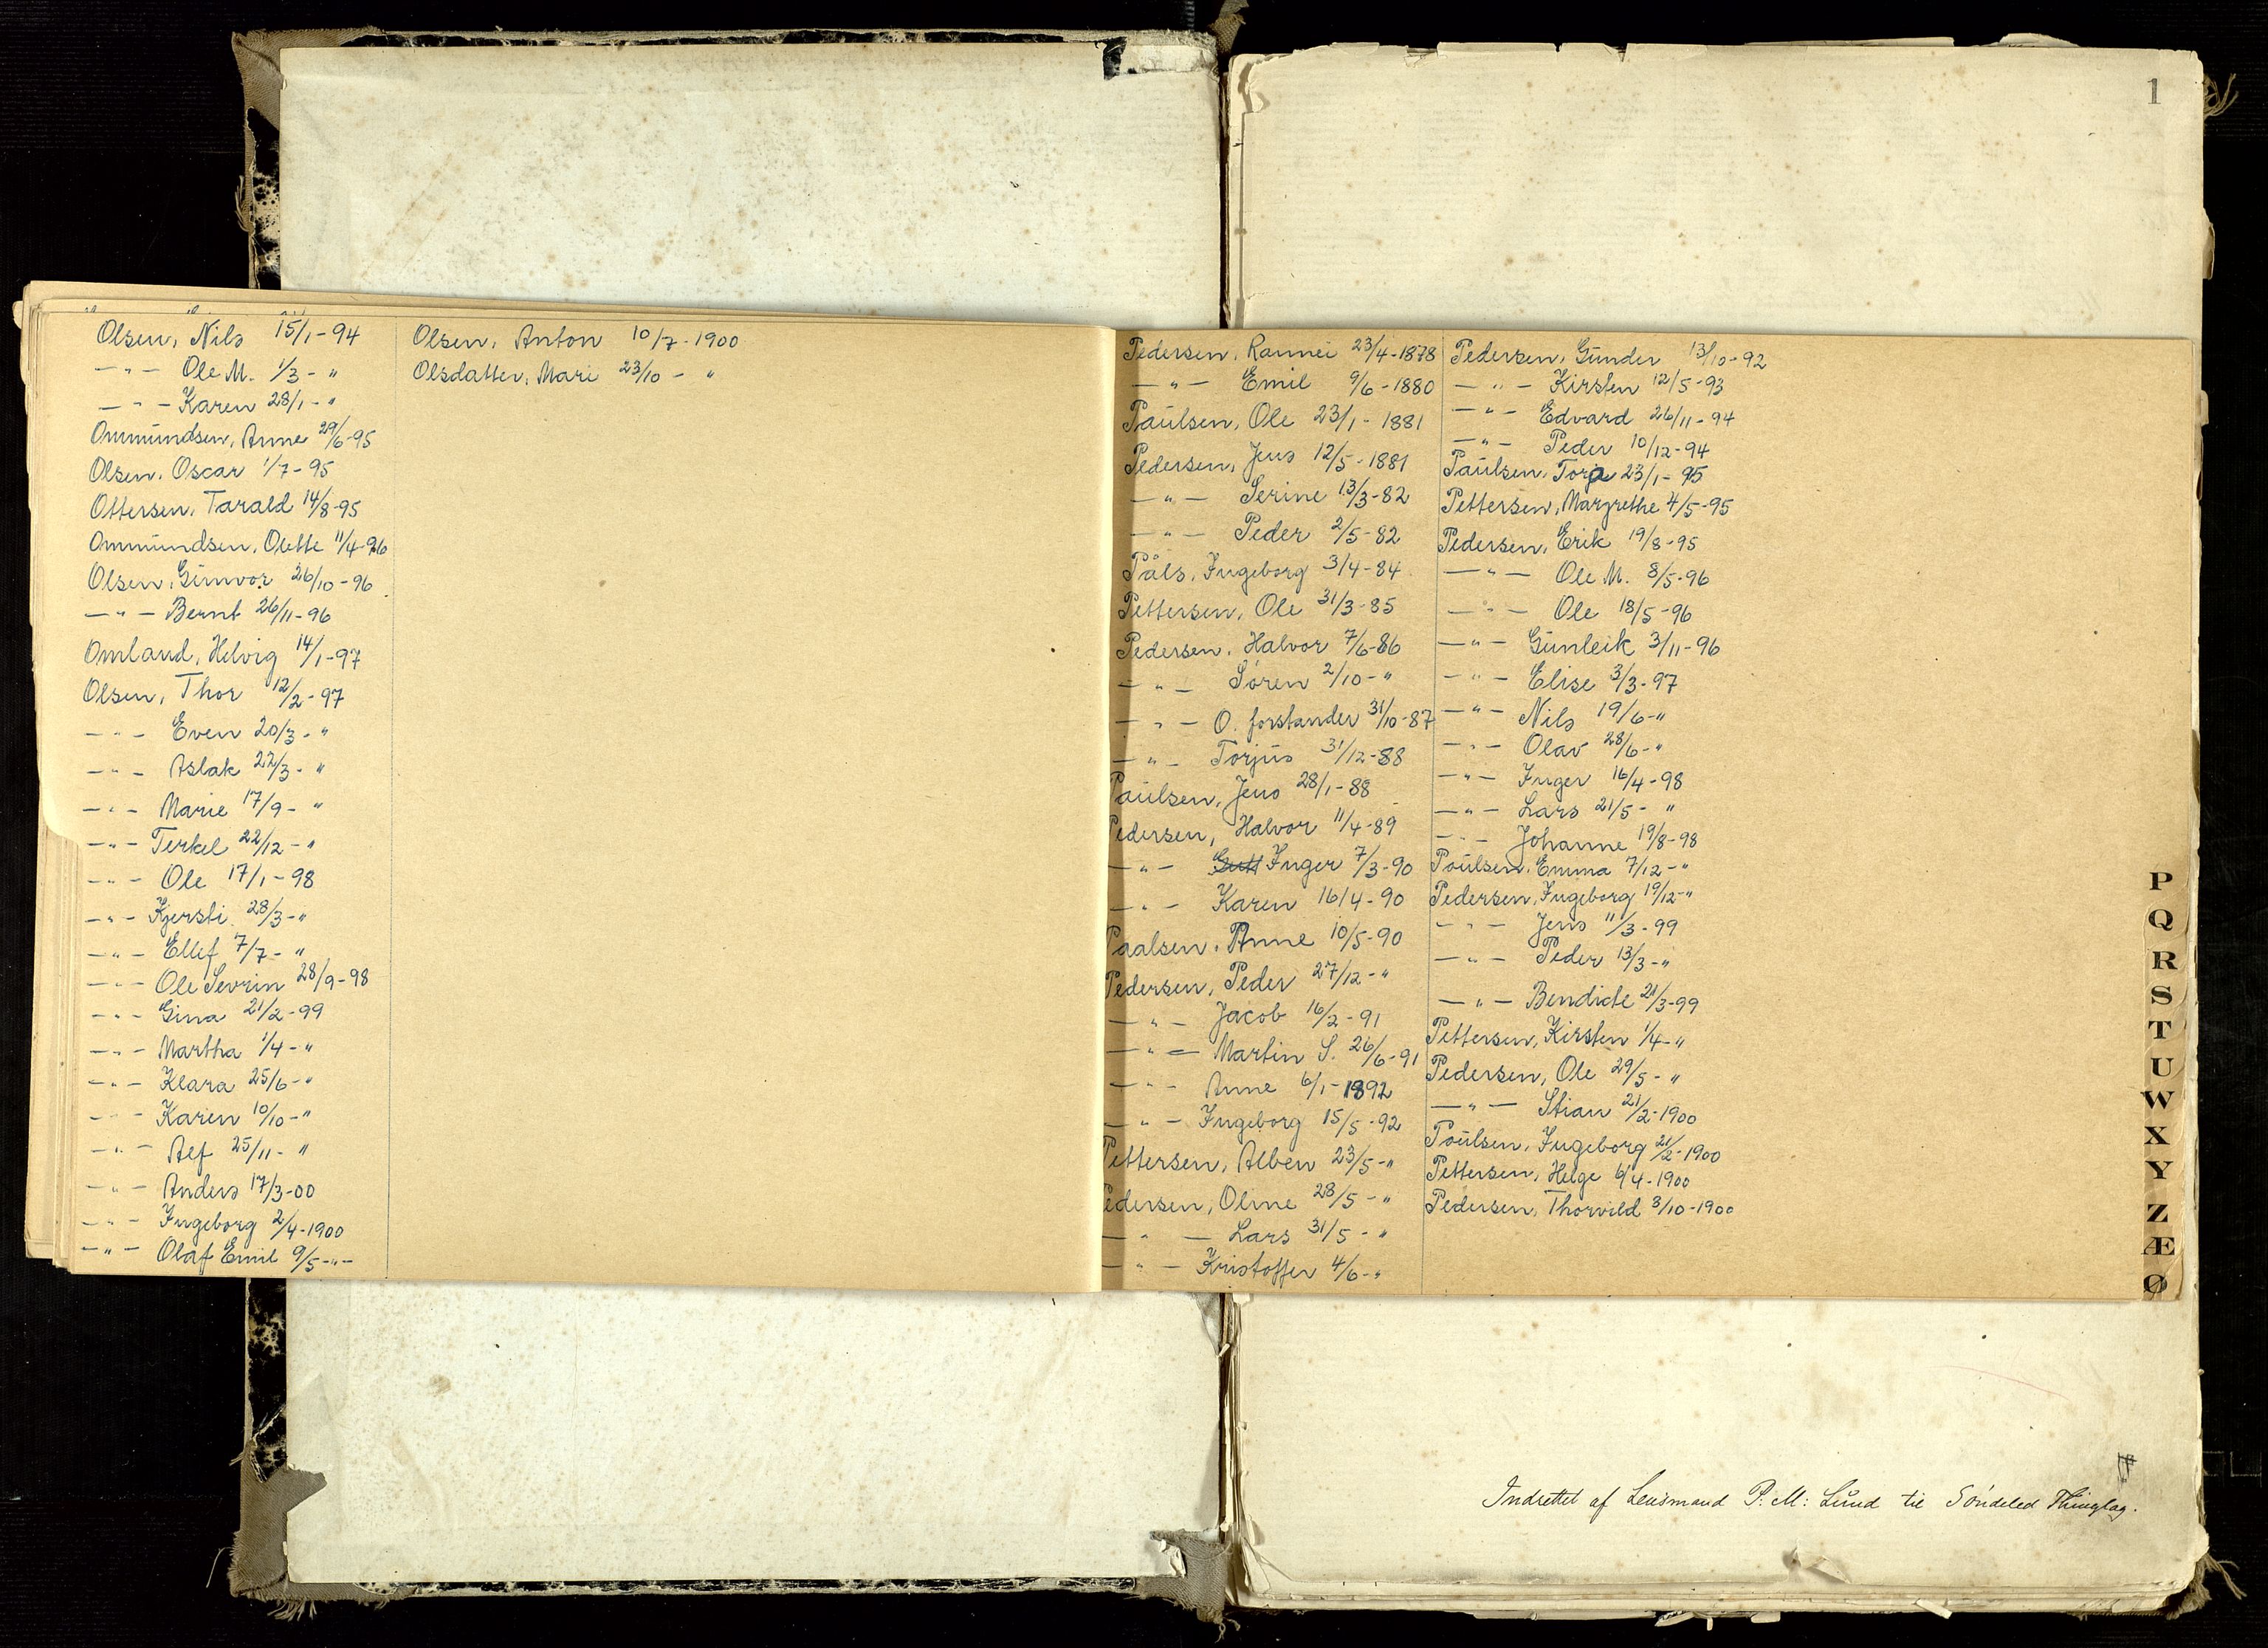 Olsen, Nils 15/1-94
-„- Ole M. 1/3-„
-„- Karen 28/1-„
Ommundsen, Anne 29/6-95
Olsen, Oscar 1/7-95
Ottersen, Tarald 14/8-95
Ommundsen, Olette 11/4-96
Olsen, Gunvor 26/10-96
-„- Bernt 26/11-96
Omland, Helvig 14/1-97
Olsen, Thor 12/2-97
-„- Even 20/3-„
-„- Aslak 22/3-„
-„- Marie 17/9-„
-„- Terkel 22/12-„
-„- Ole 17/1-98
-„- Kjersti 28/3-„
-„- Ellef 7/7-„
-„- Ole Sevrin 28/9-98
-„- Gina 21/2-99
-„- Martha 1/4-„
-„- Klara 25/6-„
-„- Karen 10/10-„
-„- Alf 25/11-„
-„- Anders 17/3-00
-„- Ingeborg 2/4-1900
-„- Olaf Emil 9/5-„-
Olsen, Anton 10/7-1900
Olsdatter, Mari 23/10-„
Pedersen, Rannei 23/4-1878
-„- Emil 9/6-1880
Paulsen, Ole 23/1-1881
Pedersen, Jens 12/5-1881
-„- Serine 13/3-82
-„- Peder 2/5-82
Påls, Ingeborg 3/4-84
Pettersen, Ole 31/3-85
Pedersen, Halvor 7/6-86
-„- Søren 2/10-„
-„- O. forstander 31/10-87
-„- Torjus 31/12-88
Paulsen, Jens 28/1-88
Pedersen, Halvor 11/4-89
-„- Inger 7/3-90
-„- Karen 16/4-90
Paalsen, Anne 10/5-90
Pedersen, Peder 27/12-„
-„- Jacob 16/2-91
-„- Martin S. 26/6-91
-„- Anne 6/1-1892
-„- Ingeborg 15/5-92
Pettersen, Alben 23/5-„
Pedersen, Oline 28/5-„
-„- Lars 31/5-„
-„- Kristoffer 4/6-„
Pedersen, Gunder 13/10-92
-„- Kirsten 12/5-93
-„- Edvard 26/11-94
-„- Peder 10/12-94
Paulsen, Torje 23/1-95
Pettersen, Margrethe 4/5-95
Pedersen, Erik 19/8-95
-„- Ole M. 8/5-96
-„- Ole 18/5-96
-„- Gunleik 3/11-96
-„- Elise 3/3-97
-„- Nils 19/6-„
-„- Olav 28/6-„
-„- Inger 16/4-98
-„- Lars 21/5-„
-„- Johanne 19/8-98
Poulsen, Emma 7/12-„
Pedersen, Ingeborg 19/12-„
-„- Jens 11/3-99
-„- Peder 13/3-„
-„- Bendicte 21/3-99
Pettersen, Kirsten 1/4-„
Pedersen, Ole 29/5-„
-„- Stian 21/2-1900
Poulsen, Ingeborg 21/2-1900
Pettersen, Helge 6/4-1900
Pedersen, Thorvild 3/10-1900
1
P
Q
R
S
T
U
W
X
Y
Z
Æ
Ø
Indrettet af Lensmand P. M: Lund til Søndeled Thinglag.